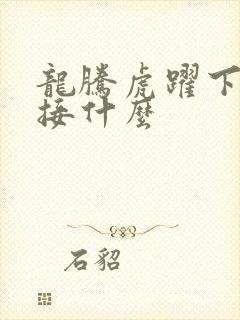 龍騰虎躍下
接什麼
石貂